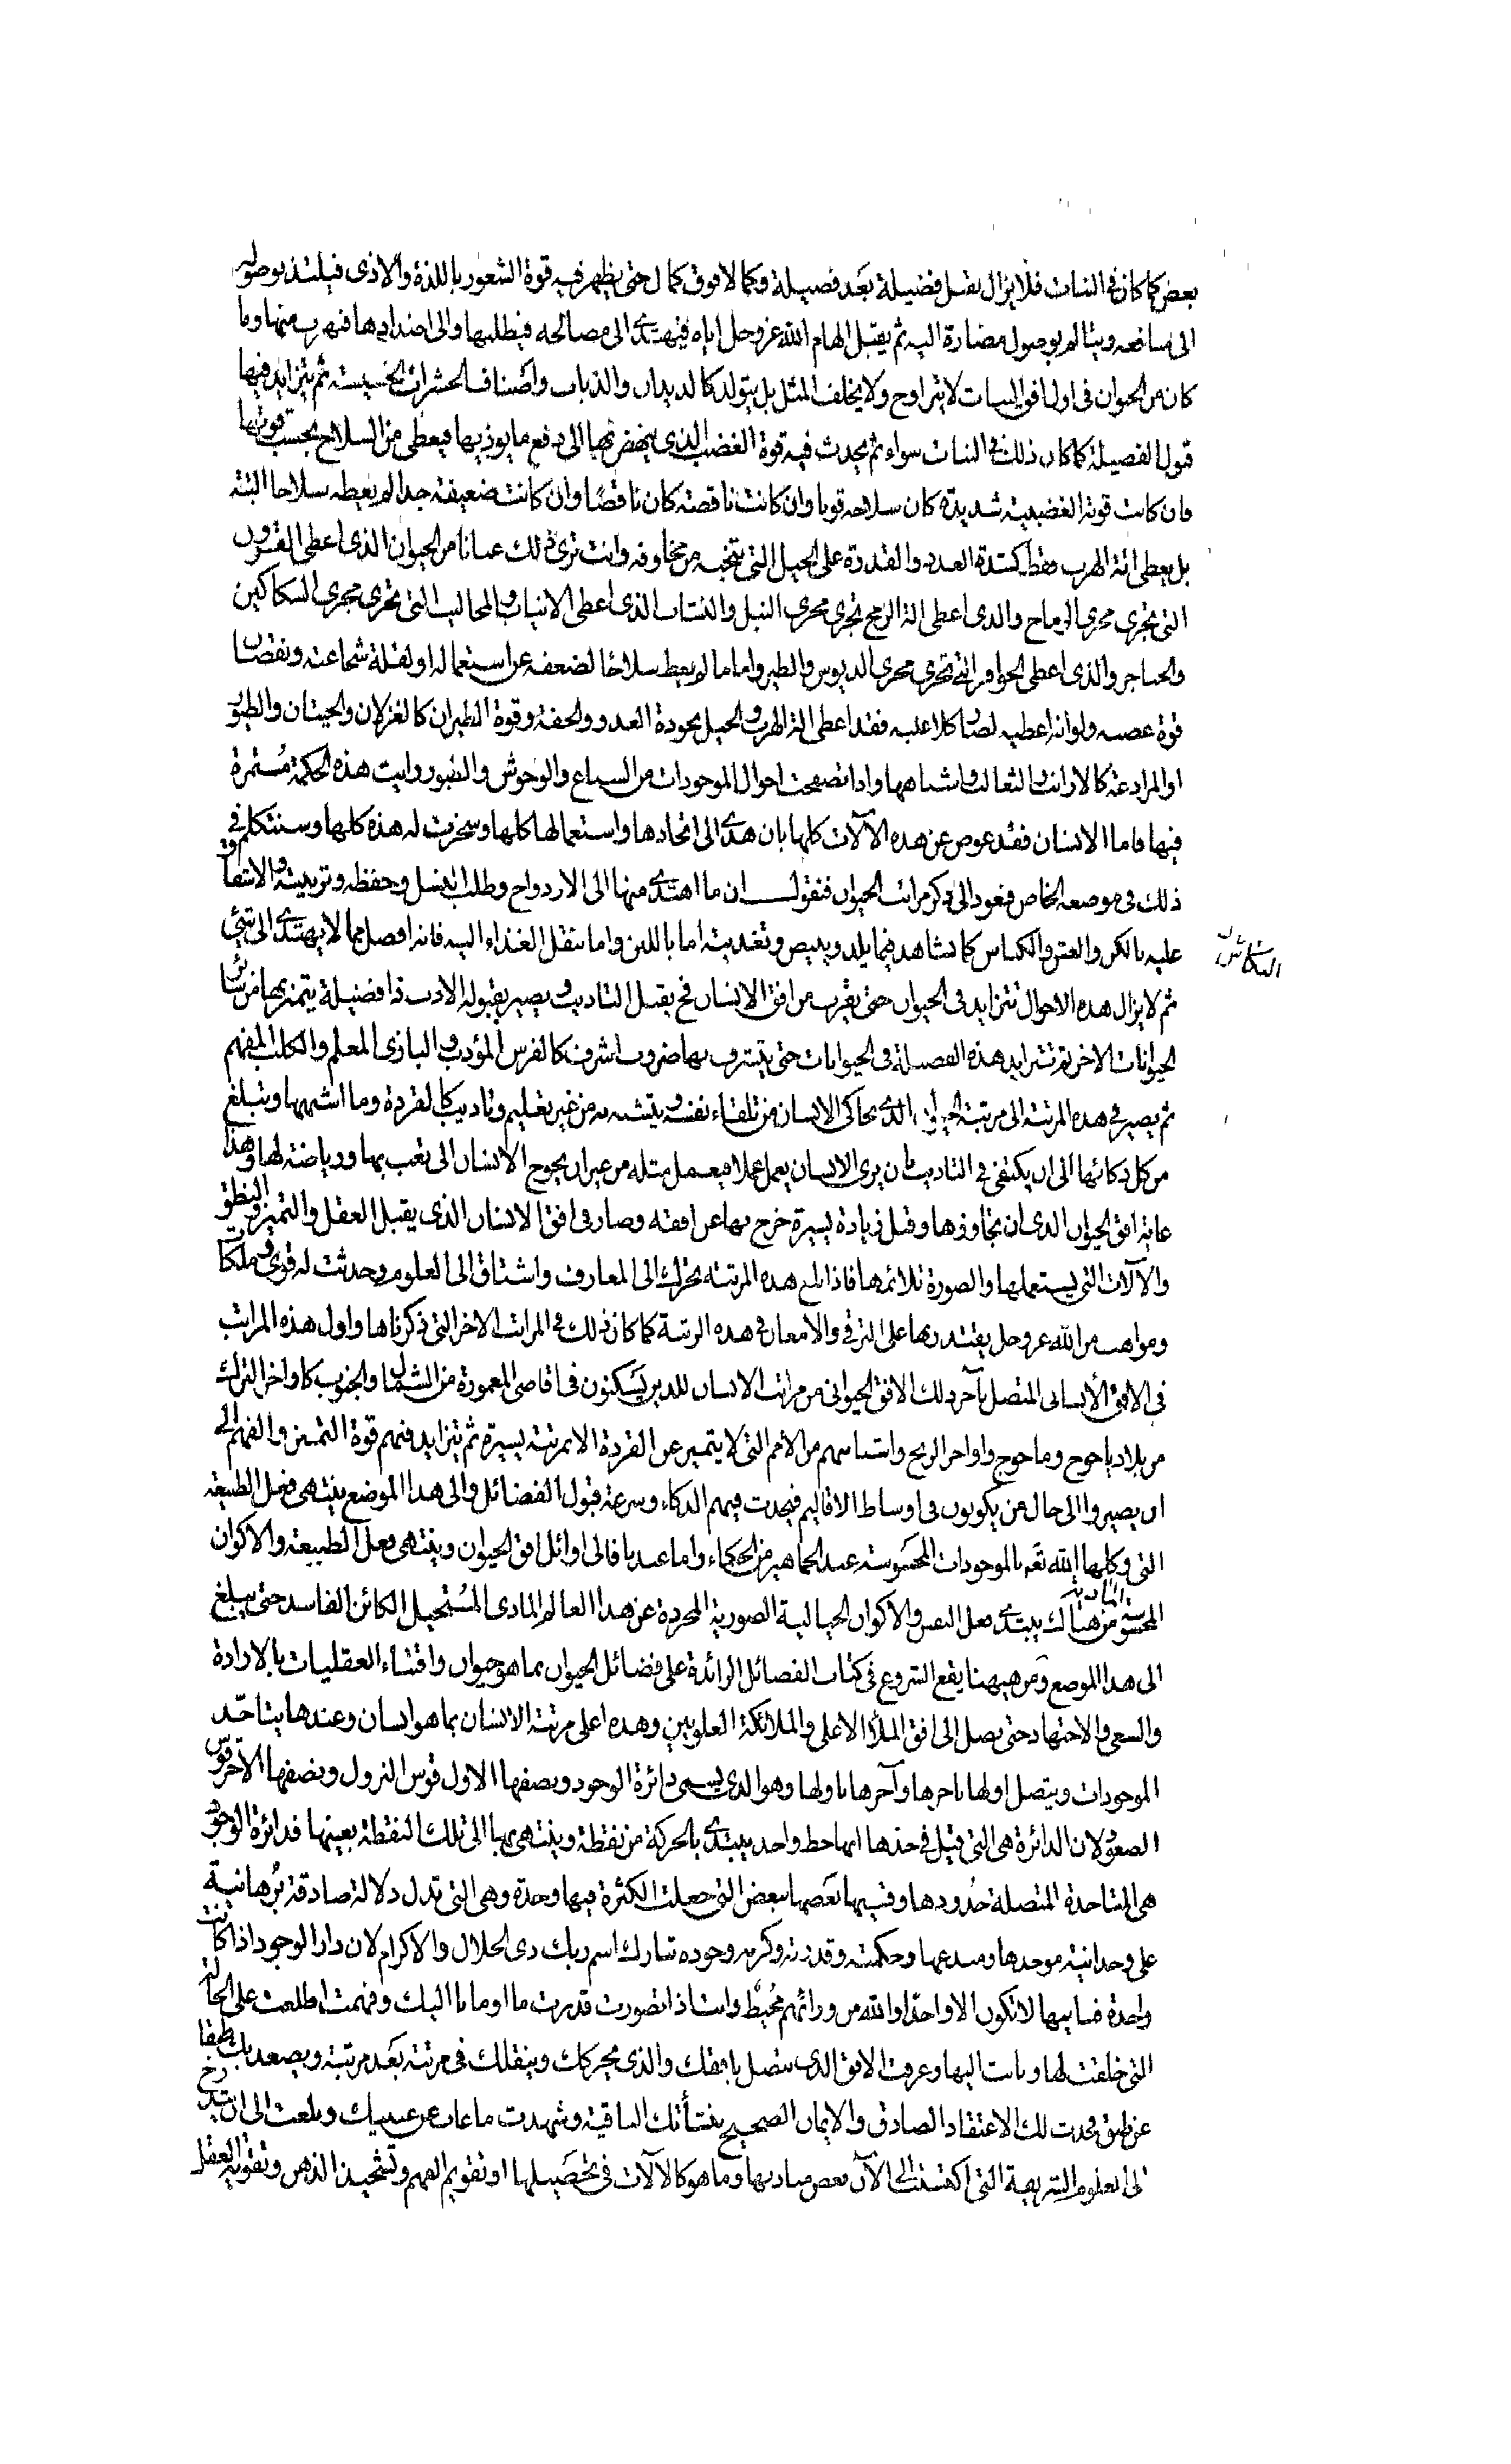 بعض كما كان في النبات فلا يزال يقبل فضيلة بعد فضيلة وكمالا فوق كمال حتى يظهر فيه قوة الشعور باللذة والاذى فيلتذ بوصوله
الى منافعه ويتالم بوصول مضارة اليه ثم يقبل الهام الله عز وجل اياه فيهتدي الى مصالحه فيطلبها والى اضدادها فيهرب منها وما
كان من الحيوان في اول افق النبات لا يتزاوج ولا يخلف المثل بل يتولد كالديدان والذباب واصناف الحشرات الخسيسة ثم يتزايد فيها
قبول الفضيلة كما كان ذلك في النبات سواء ثم يحدث فيه قوة الغضب الذي ينهض بها الى دفع ما يوذيها فيعطى من السلاح بحسب قوتها
فان كانت قوته الغضبية شديدة كان سلاحه قويا وان كانت ناقصة كان ناقصًا وان كانت ضعيفة جدا لم يعطه سلاحا البتة
بل يعطى الة الهرب فقط كشدة العدو والقدرة على الحيل التي تنجيه من مخاوفه وانت ترى ذلك عيانا من الحيوان الذي اعطى القرون
التي تجري مجرى الرماح والذي اعطى الة الرمح تجري مجرى النبل والنشاب الذي اعطى الانياب والمخاليب التي تجري مجرى السكاكين
والخناجر والذي اعطى الحوافر التي تجري مجرى الدبوس والطبر واما ما لم يعط سلاحًا لضعفه عن استعماله او لقلة شجاعته ونقصان
قوة غضبه ولو انه اعطيه لصار كلا عليه فقد اعطى الة الهرب والحيل بجودة العدو والخفة وقوة الطيران كالغزلان والحيتان والطيور
او المراوغة كالارانب والثعالب واشباهها واذا تصفحت احوال الموجودات من السباع والوحوش والطيور رايت هذه الحكمة مُستمرة
فيها فاما الانسان فقد عوض عن هذه الآلات كلها بان هدي الى اتخاذها واستعمالها كلها وسخرت له هذه كلها وسنتكلم في
ذلك في موضعه الخاص فنعود الى ذكر مراتب الحيوان فنقول ان ما اهتدي منها الى الازدواج وطلب النسل وحفظه وتربيته والاشفاق
عليه بالكن والعش والكناس كما نشاهد فيما يلد ويبيض وتغذيته اما باللبن واما بنقل الغذاء اليه فانه افضل مما لا يهتدي الى شيء
ثم لا يزال هذه الاحوال تتزايد في الحيوان حتى يقرب من افق الانسان فح يقبل التاديب ويصير بقبوله الادب ذا فضيلة يتميز بها من سائر
الحيوانات الاخر ثم تتزايد هذه الفضيلة في الحيوانات حتى يتشرف بها ضروب الشرف كالفرس المؤدب والبازي المعلم والكلب المفهم
ثم يصير في هذه المرتبة الى مرتبة الحيوان الذي يحاكى الانسان من تلقاء نفسه ويتشبه به من غير تعليم وتاديب كالقردة وما اشبهها وتبلغ
من كل ذكائها الى ان يكتفى في التاديب بان يرى الانسان يعمل عملا فيعمل مثله من غير ان يحوج الانسان الى تعب بها ورياضة لها وهذا
غاية افق الحيوان الذي ان تجاوزها وقبل زيادة يسيرة خرج بها عن افقه وصار في افق الانسان الذي يقبل العقل والتميز والنطق
والآلات التي يستعملها والصورة تلائمها فاذا بلغ هذه المرتبة تحرك الى المعارف واشتاق الى العلوم وحدثت له قوى وملكات
ومواهب من الله عز وجل يقتدر بها على الترقي والامعان في هذه الرتبة كما كان ذلك في المراتب الاخر التي ذكرناها واول هذه المراتب
في الافق الأنساني المتصل بآخر ذلك الافق الحيواني من مراتب الانسان للذين يَسكنون في اقاصى المعمورة من الشمال والجنوب كاواخر الترك
من بلاد ياجوج وماجوج واواخر الزنج واشباههم من الأمم التي لا يتميز عن القردة الا بمرتبة يسيرة ثم تتزايد فيهم قوة التميز والفهم الى
ان يصيروا الى حال من يكونون في اوساط الاقاليم فيحدث فيهم الذكاء وسرعة قبول الفضائل والى هذا الموضع ينتهي فعل الطبيعة
التي وكلها الله تعَ بالموجودات المحَسوسة عند الجماهير من الحكماء واما عندنا فالى اوائل افق الحيوان وينتهى فعل الطبيعة والاكوان
المحسوسة المادية ومن هناك يبتدي فعل النفس والاكوان الخيالية الصورية المجردة عن هذا العالم المادى المُستحيل الكائن الفاسد حتى يبلغ
الى هذا الموضع ومن هيهنا يقع الشروع في كتاب الفضائل الزائدة على فضائل الحيوان بما هو حيوان واقتناء العقليات بالارادة
والسعي والاجتهاد حتى يصل الى افق الملأ الاعلى والملائكة العلويين وهذه اعلى مرتبة الانسان بما هو انسان وعندها يتاحّد
الموجودات ويتصل اولها باخرها وآخرها باولها وهو الذي يسمى دائرة الوجود ونصفها الاول قوس النزول ونصفها الآخر قوس
الصعود لان الدائرة هي التي قيل في حدها انها خط واحد يبتدي بالحركة من نقطة وينتهى بها الى تلك النقطة بعينها فدائرة الوجود
هي المتاحدة المتصلة حُدودها وقسيها بَعضها ببعض التي جعلت الكثرة فيها وحدة وهي التي تدل دلالة صادقة بُرهانية
على وحدانية موجدها ومبدعها وحكمته وقدرته وكرمه وجوده تبارك اسم ربك ذى الجلال والاكرام لان دار الوجود اذا كانت
واحدة فبانيها لا تكون الا واحدًا والله من ورائهم مُحيطٌ وانت اذا تصورت قدر ما اومانا اليك وفهمته اطلعت على الحالة
التي خلقت لها وندبت اليها وعرفت الافق الذي يتصل بافقك والذي يحركك وينقلك في مرتبة بعَد مرتبة ويصعد بك طبقا
عن طبق فحدث لك الاعتقاد الصادق والايمان الصحيح بنشأتك الباقية وشهدت ما غاب عن عينيك وبلغت الى ان تتدرج
الى العلوم الشريعة التي اكتسبت الى الآن بعض مباديها وما هو كالآلات في تحصَيلها او تقويم الفهم وتشحيذ الذهن وتقوية العقل